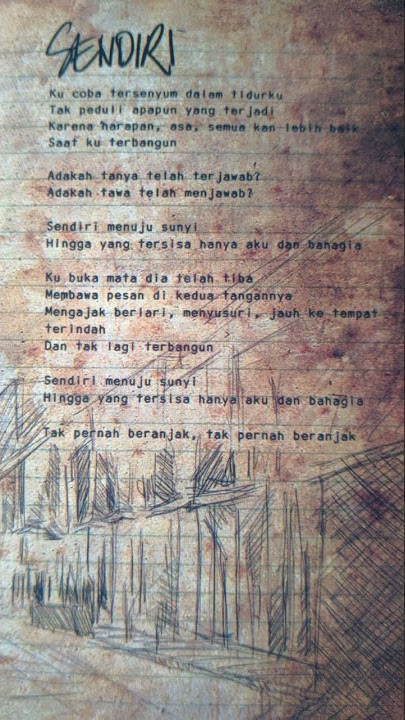 SENDIRI
Ku coba tersenyum dalam tidurku
Tak peduli apapun yang terjadi
Karena harapan, asa, semua kan lebih baik
Saat ku terbangun
Adakah tanya telah terjawab?
Adakah tawa telah menjawab?
Sendiri menuju sunyi
Hingga yang tersisa hanya aku dan bahagia
Ku buka mata dia telah tiba
Membawa pesan di kedua tangannya
Mengajak berlari, menyusuri, jauh ke tempat
terindah
Dan tak lagi terbangun
Sendiri menuju sunyi
Hingga yang tersisa hanya aku dan bahagia
Tak pernah beranjak, tak pernah beranjak